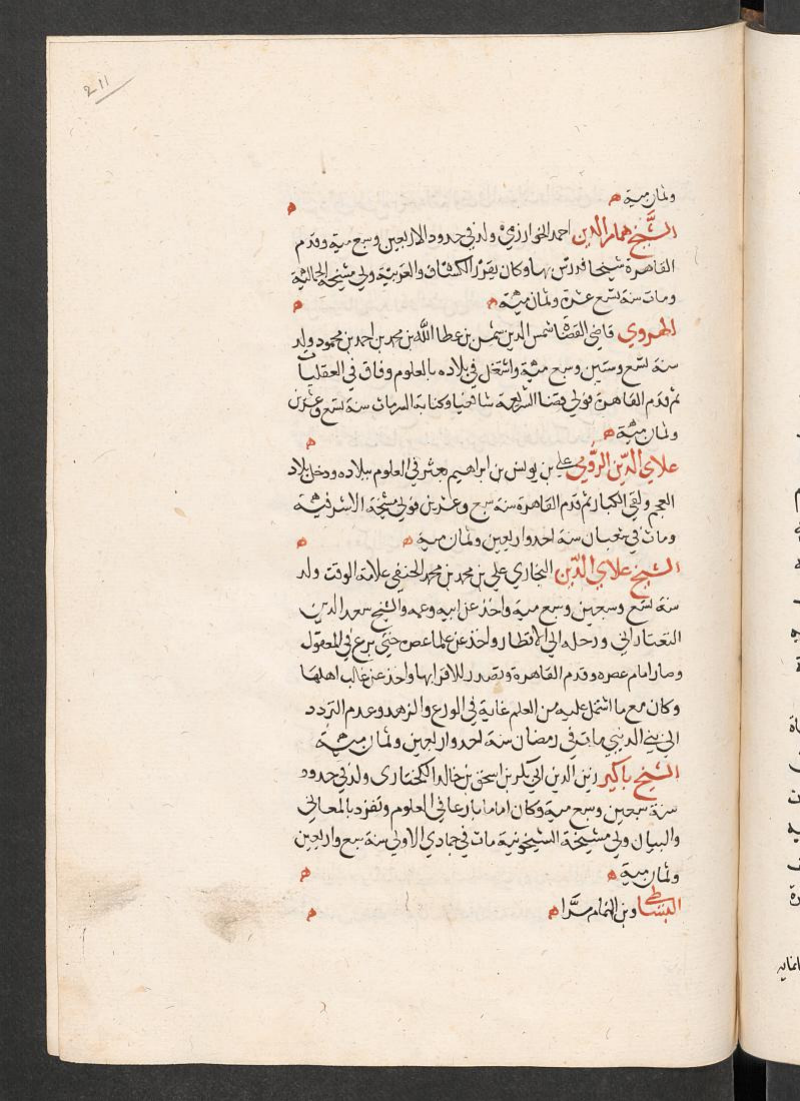 211
وثمان مية
الشيخ همام الدين احمد الخوارزمي ولد في حدود الاربعين وسبع مية وقدم
القاهرة شيخا فدرس بها وكان يقرر الكشاف والعربية وولي مشيخة الجمالية
ومات سنة تسع عشرة وثمان مئة
الهروي قاضي القضاة شمس الدين شمس بن عطا الله بن محمد بن احمد بن محمود ولد
سنة تسع وستين وسبع مئة واشتغل في بلاده بالعلوم وفاق في العقليات
ثم قدم القاهرة فولي قضا الشافعية وكتابة السر مات سنة تسع وعشرين
وثمان مئة
علاي الدين الرومي علي بن يونس بن ابراهيم في العلوم ببلاده ودخل بلاد
العجم ولقي الكبار ثم قدم القاهرة سنة سبع وعشرين فولي مشيخة الاشرفية
ومات في شعبان سنة احد واربعين وثمان مية
الشيخ علاي الدين البخاري علي بن محمد بن محمد الحنفي علامة الوقت ولد
سنة تسع وسبعين وسبع مية واخذ عن ابيه وعمه والشيخ سعد الدين
التفتازاني ورحل الي الاقطار واخذ عن علما عصره حتي برع في المعقول
وصار امام عصره وقدم القاهرة وتصدر للاقرا بها واخذ عن غالب اهلها
وكان مع ما اشتمل عليه من العلم غاية في الورع والزهد وعدم التردد
الي بني الدنيي مات في رمضان سنة احد واربعين وثمان مئة
الشيخ باكير زين الدين ابي بكر بن اسحق بن خالد الكختاوي ولد في حدود
سنة سبعين وسبع مية وكان اماما بارعا في العلوم وتفرد بالمعاني
والبيان ولي مشيخة الشيخونية مات في جمادي الاولي سنة سبع واربعين
وثمان مية
البساطي وبن الهمام مرّا